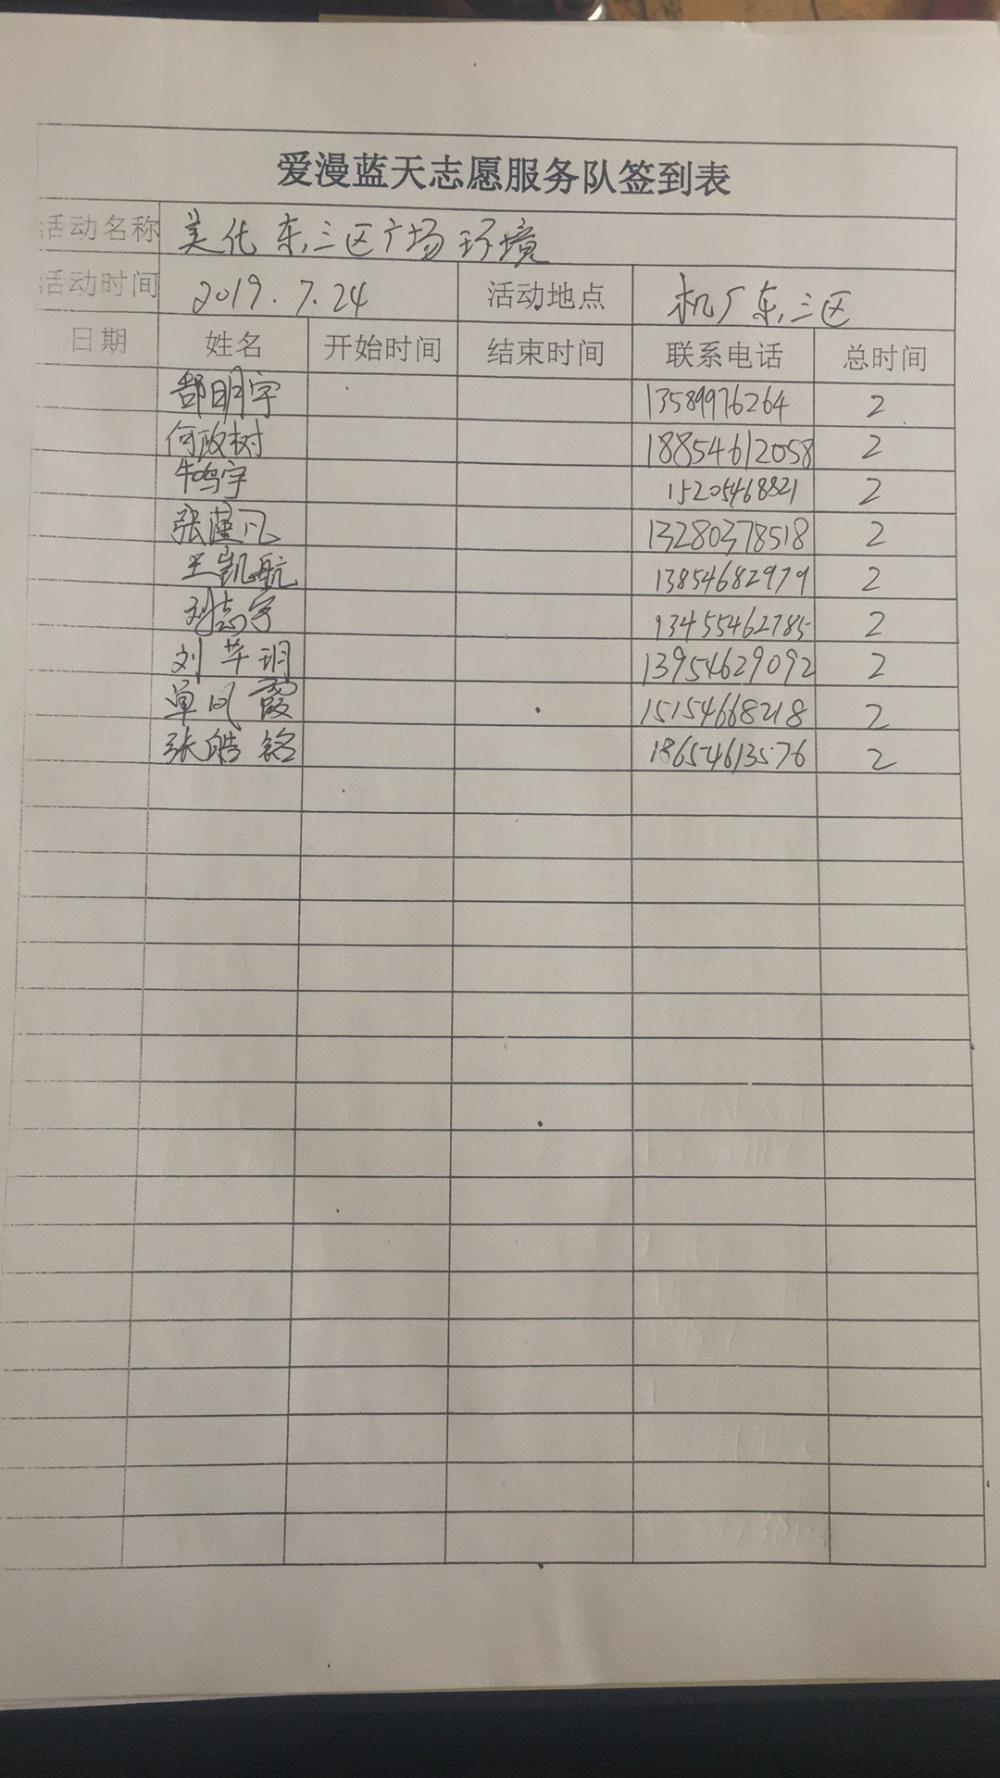 爱漫蓝天志愿服务队签到表
活动名称 美化东三区广场环境
活动时间 2019.7.24 活动地点 机厂东三区
日期 姓名 开始时间 结束时间 联系电话 总时间
郜明宇 13589976264 2
何政树 18854612058 2
牛鸣宇 15205468821 2
张瑾凡 13280378518 2
王凯航 13854682979 2
刘志宇 13455462785 2
刘芊玥 13954629092 2
单凤霞 15154668218 2
张皓铭 18654613576 2